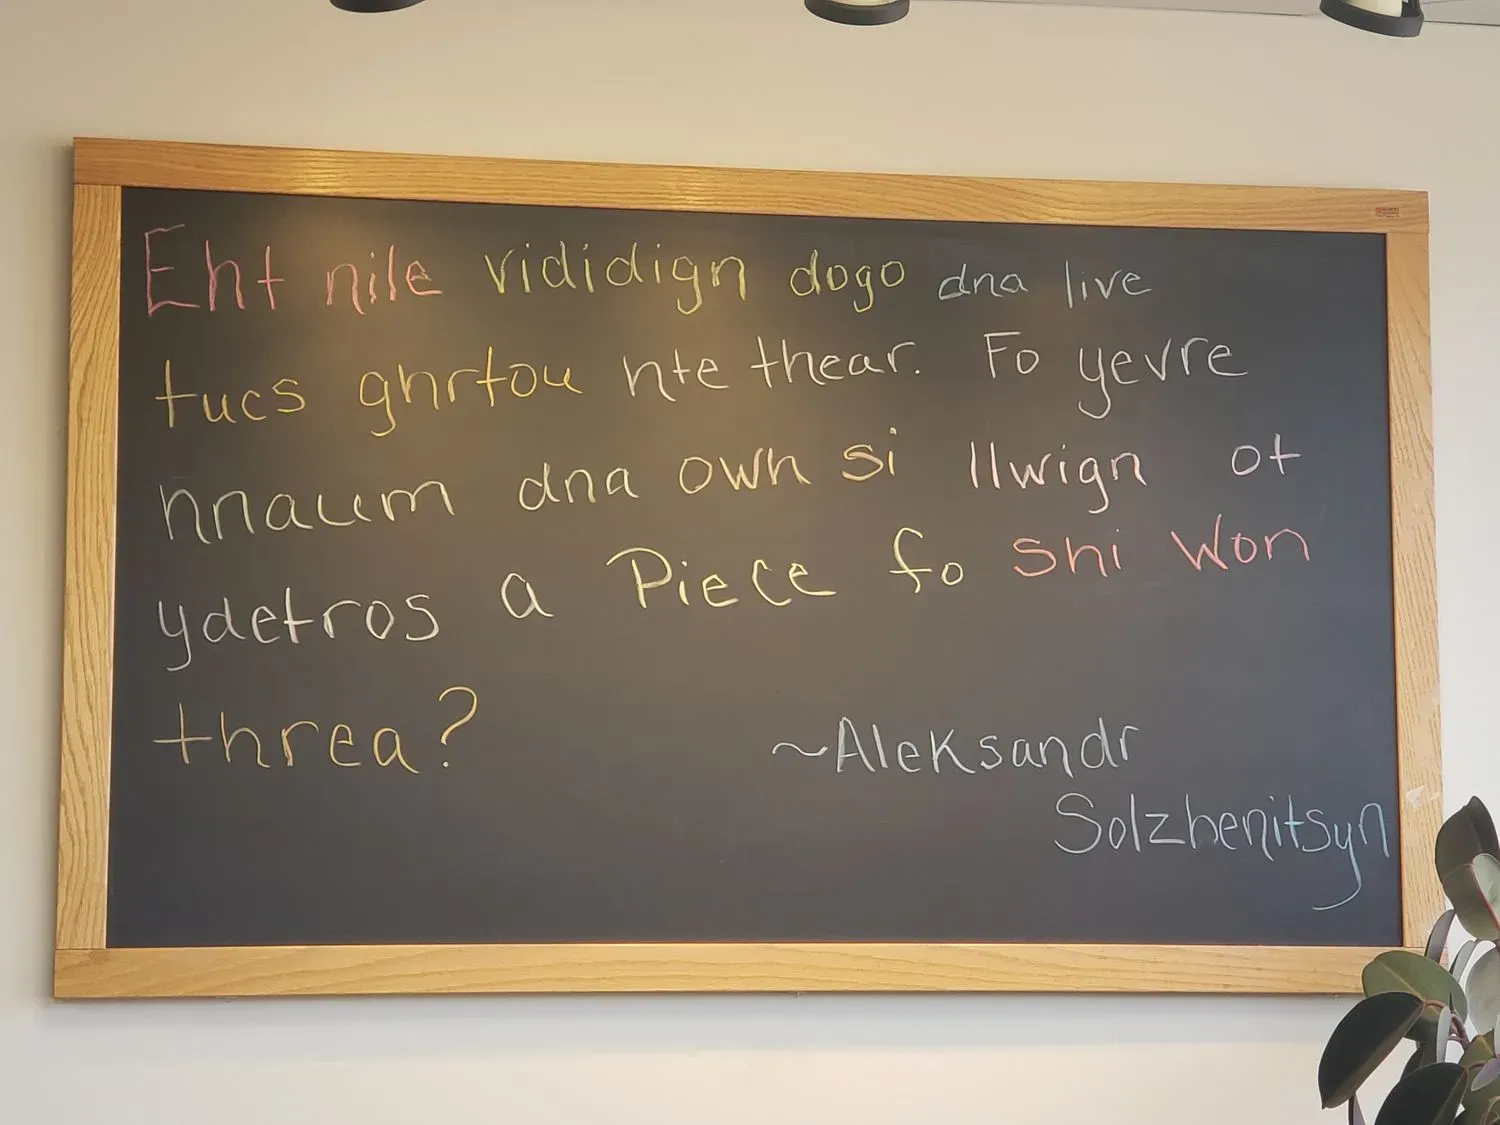 Eht nile vididign dogo dna live
tucs ghrtou hte thear. Fo yevre
hnaum dna own si llwign ot
ydetros a Piece fo shi won
threa?
~Aleksandr
Solzhenitsyn